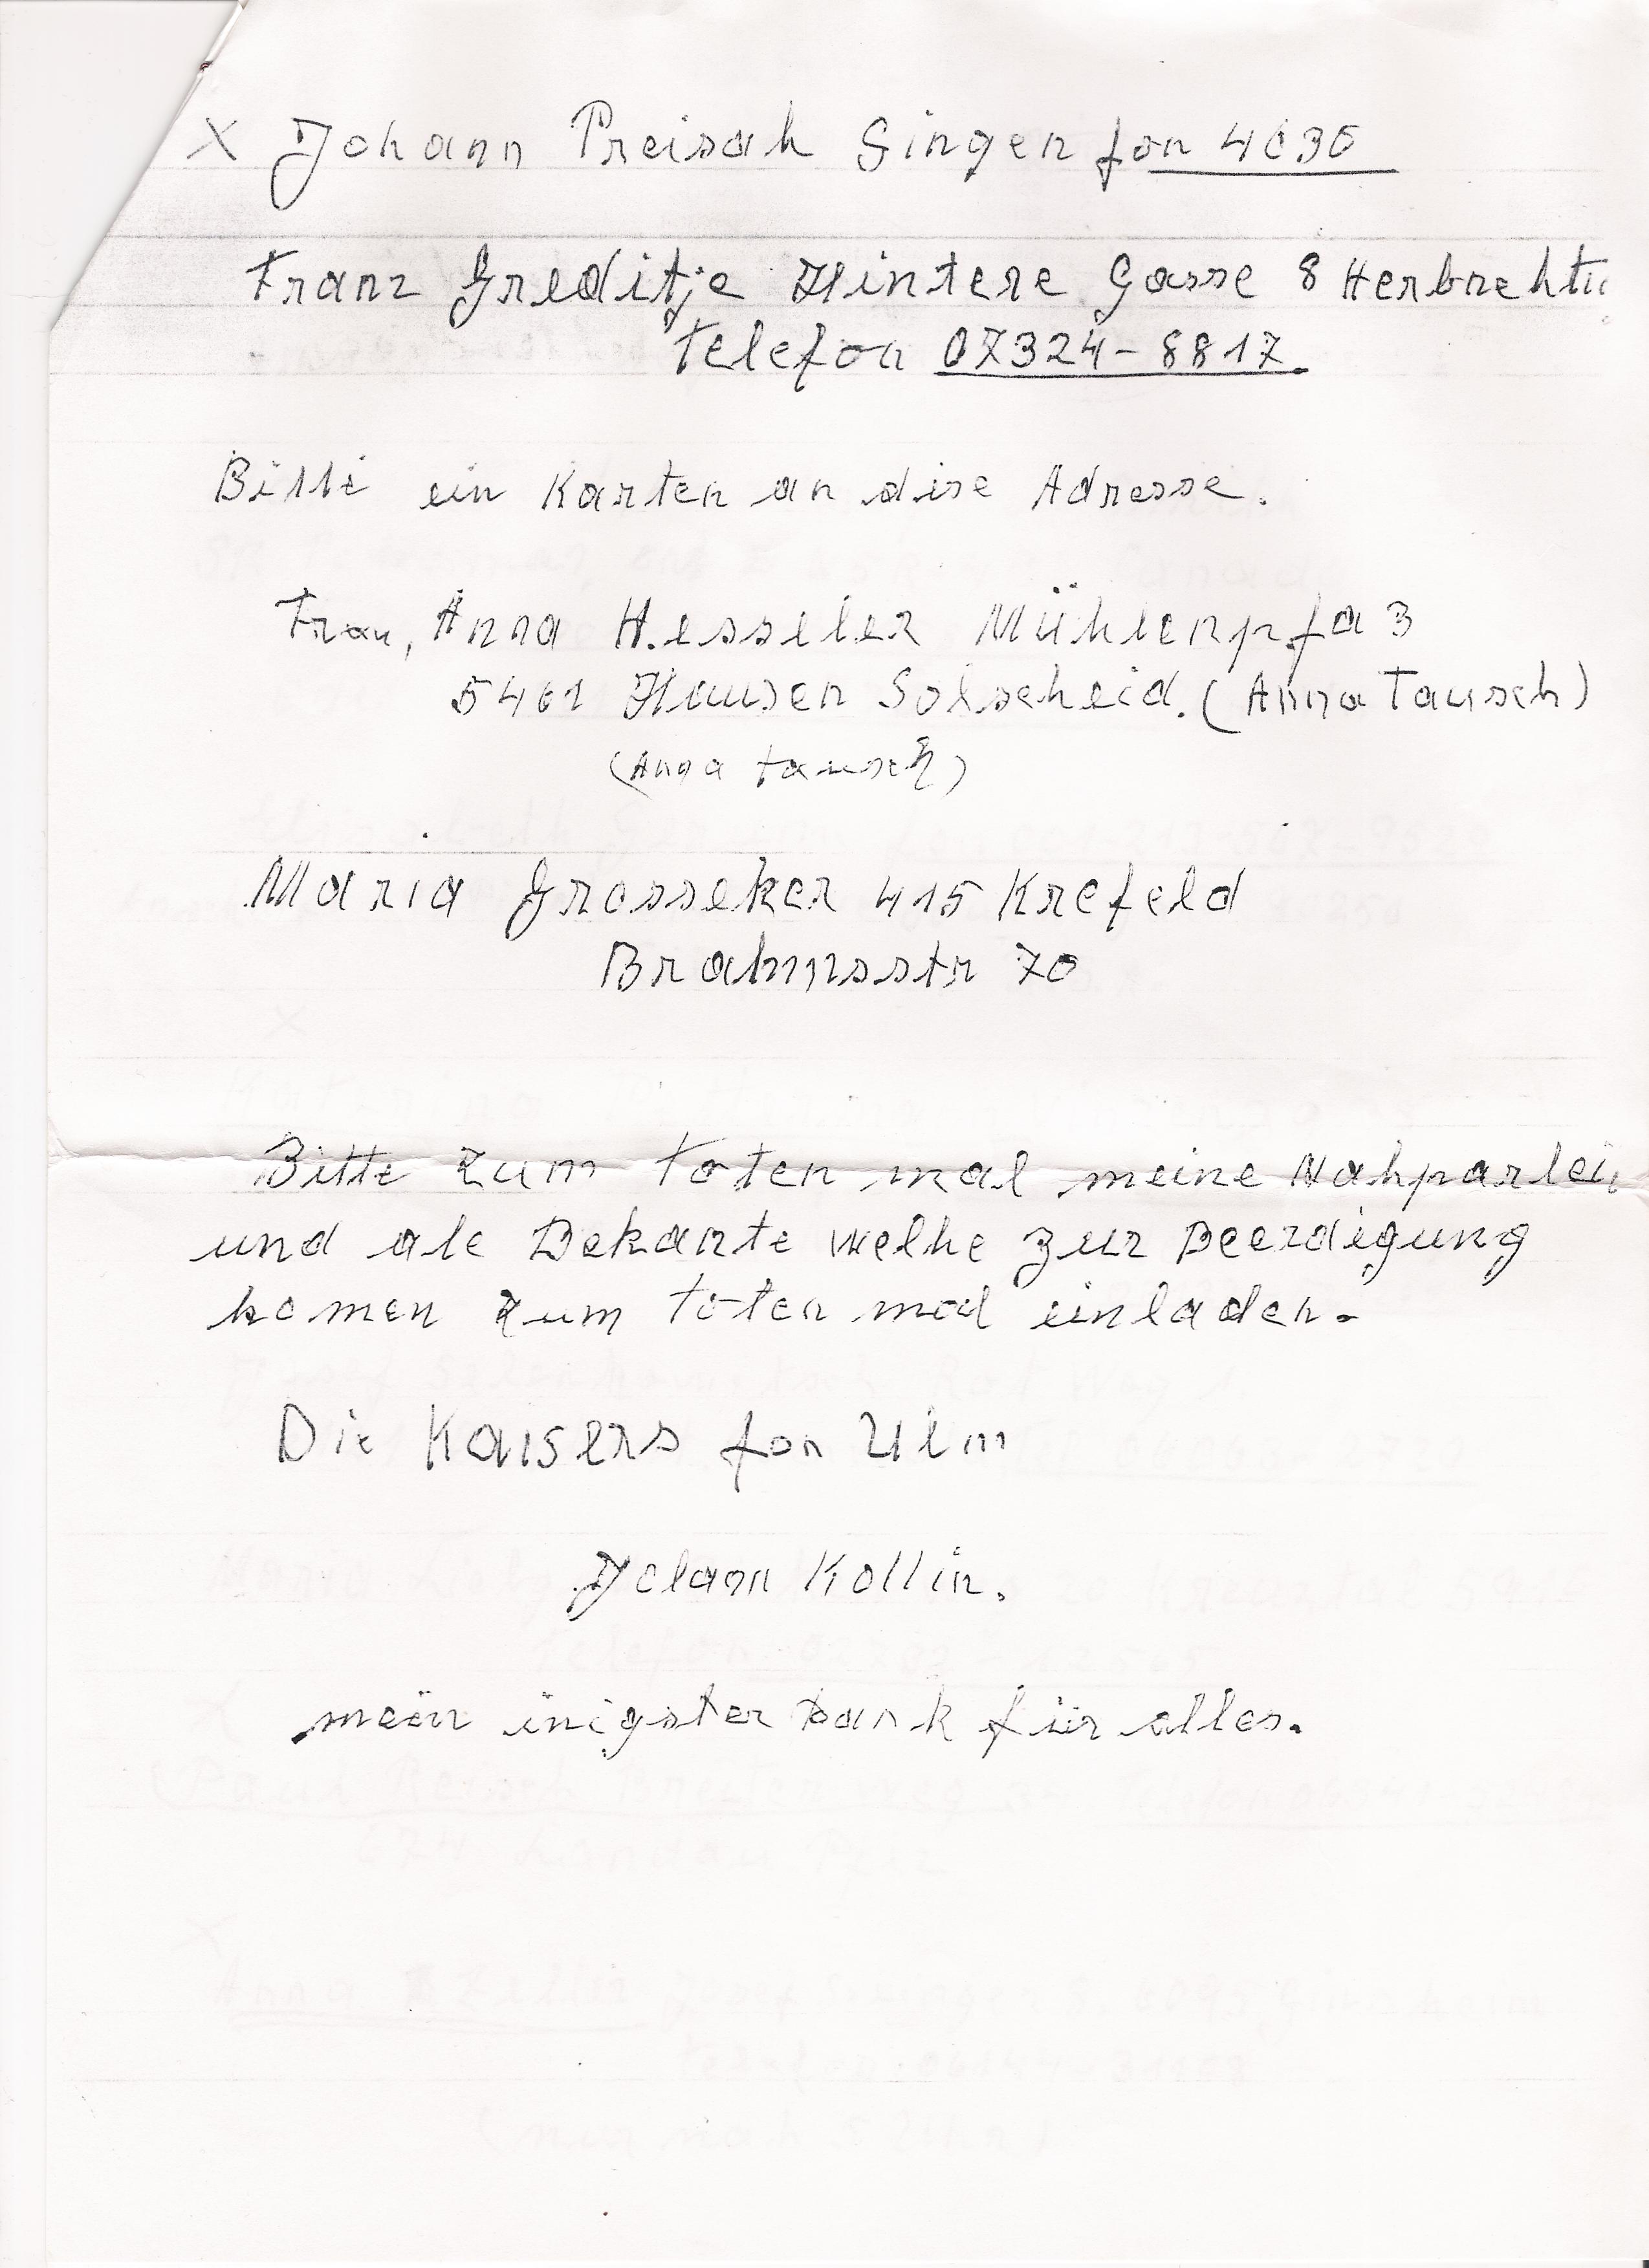 X Johann Preisach Gingen fon 4030
Franz Greditje Hintere Gasse 8 Herbrehti
Telefon 07324-8817.
Bitte ein Karten an dise Adresse.
Frau, Anna Hesseler Mühlenpfa 3
5461 Hausen Solscheid. (Anna Tausch)
(Anna tausch)
Maria Grosseker 415 Krefeld
Brahmsstr 70
Bitte zum toten mal meine Nahparlei
und ale Bekante welhe zur Beerdigung
komen zum toten mal einladen.
Die Kaisers fon Ulm
Kollin.
mein inigster Dank für alles.